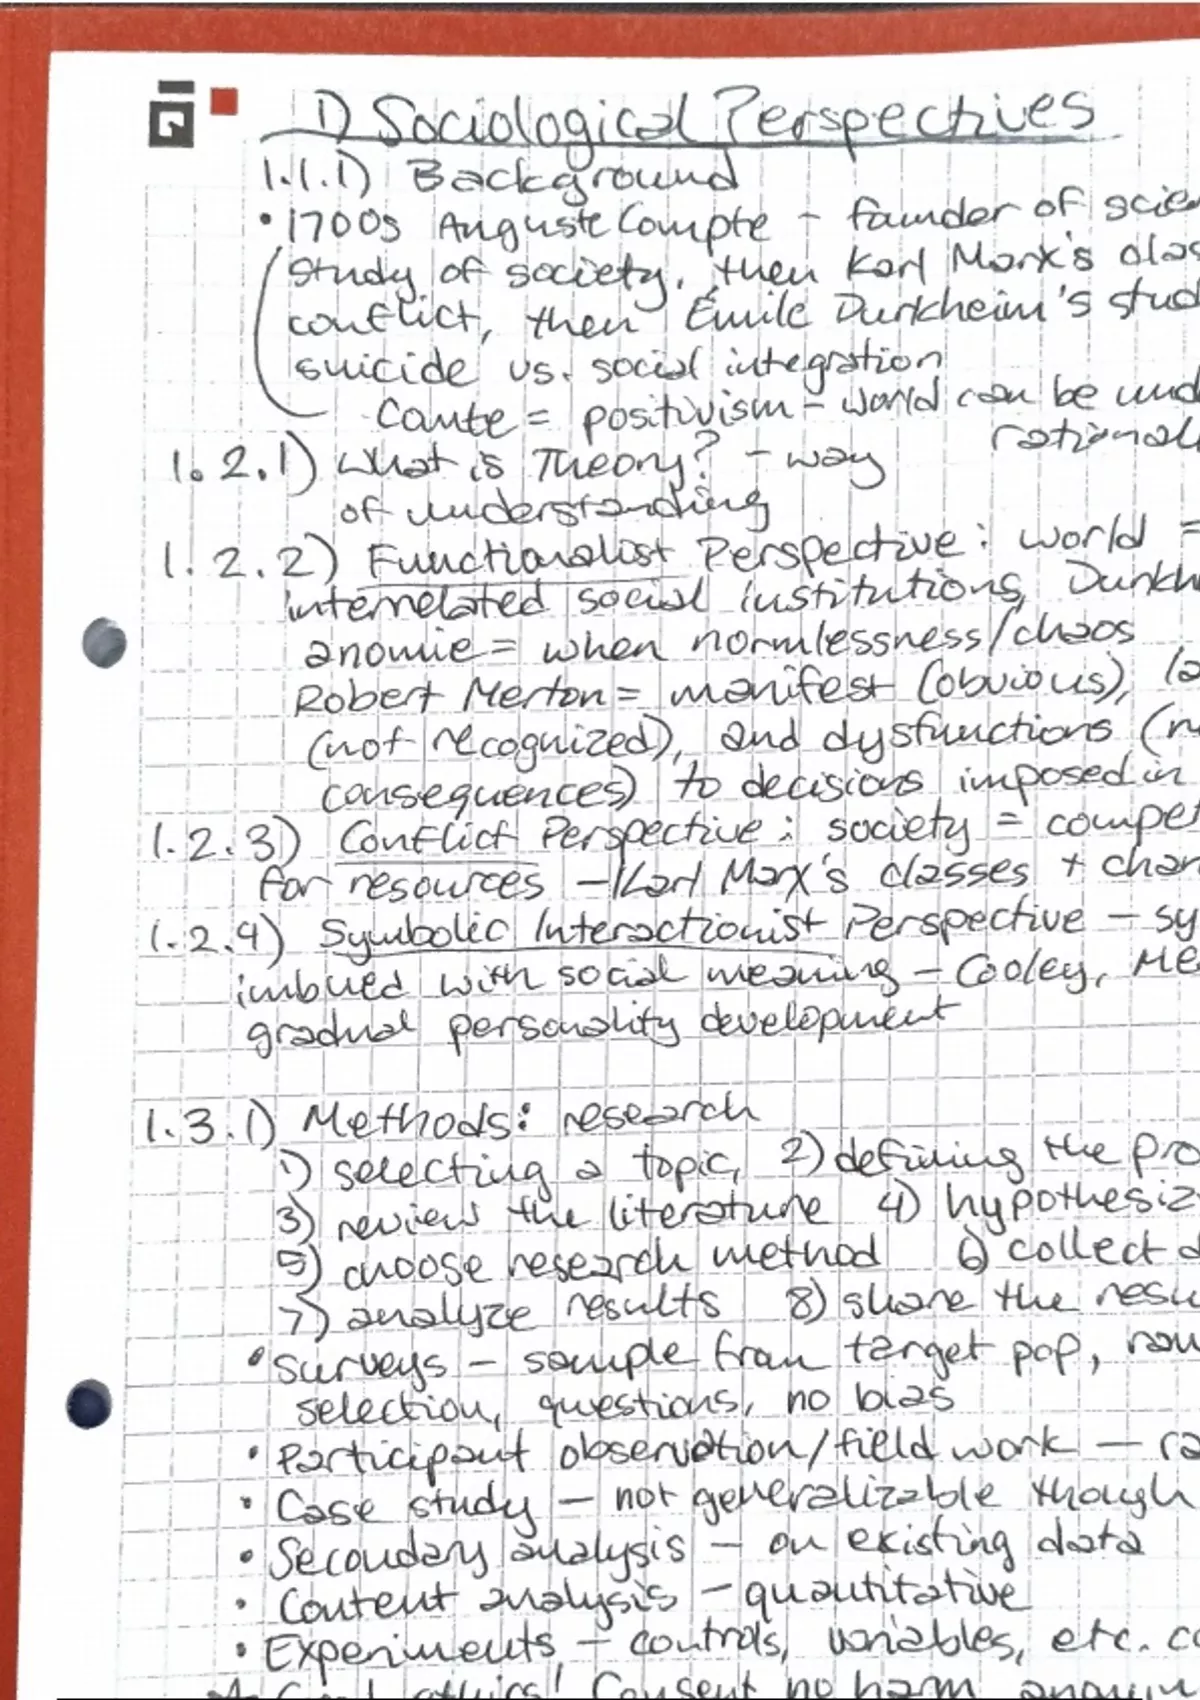 1) Sociological Perspectives
1.1.1) Background
• 1700s Auguste Compte – founder of scie
study of society, then Karl Marx's clas
conflict, then Émile Durkheim's stud
suicide vs. social integration
Comte = positivism – world can be und
rational
1.2.1) What is Theory? – way
of understanding
1.2.2) Functionalist Perspective: world =
interrelated social institutions, Durkh
anomie = when normlessness/chaos
Robert Merton = manifest (obvious), la
(not recognized), and dysfunctions (n
consequences) to decisions imposed in
1.2.3) Conflict Perspective: society = compet
for resources – Karl Marx's classes + chan
1.2.4) Symbolic Interactionist Perspective – sy
imbued with social meaning – Cooley, Me
gradual personality development
1.3.1) Methods: research
1) selecting a topic, 2) defining the pro
3) review the literature 4) hypothesiz
5) choose research method 6) collect d
7) analyze results 8) share the resu
• surveys – sample from target pop, ran
selection, questions, no bias
• Participant observation/field work – ra
• Case study – not generalizable though
• Secondary analysis – on existing data
• Content analysis – quantitative
• Experiments – controls, variables, etc. co
ethics! Consent no harm